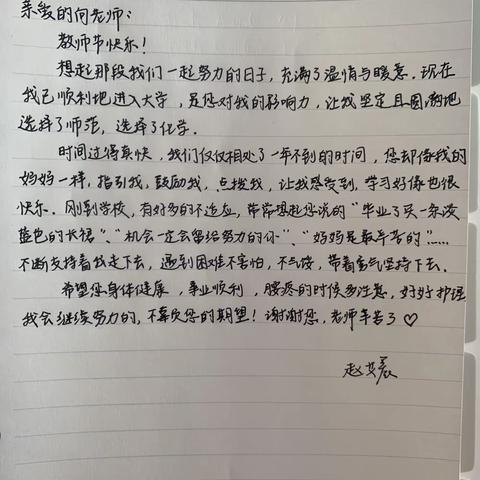 亲爱的向老师:
教师节快乐!
想起那段我们一起努力的日子,充满了温情与暖意.现在
我已顺利地进入大学,是您对我的影响力,让我坚定且圆满地
选择了师范,选择了化学.
时间过得真快,我们仅仅相处了一年不到的时间,您却像我的
妈妈一样,指引我,鼓励我,点拨我,让我感受到,学习好像也很
快乐.刚到学校,有好多的不适应,常常想起您说的“毕业了买一条淡
蓝色的长裙”、“机会一定会留给努力的你”、“妈妈是最辛苦的”……
不断支持着我走下去,遇到困难不害怕,不气馁,带着勇气坚持下去.
希望您身体健康,事业顺利,腰疼的时候多注意,好好护理
我会继续努力的,不辜负您的期望!谢谢您,老师辛苦了♡
赵艾晨